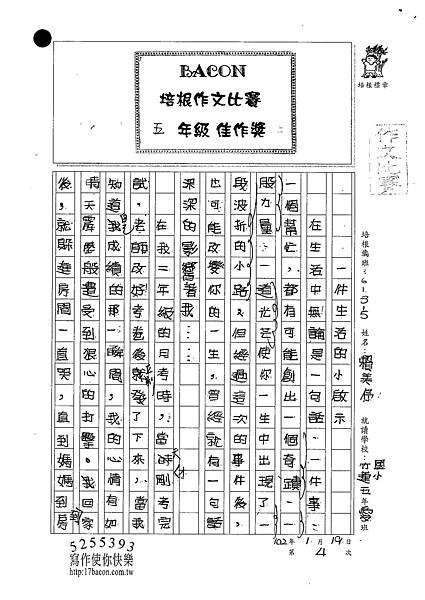 BACON
培根作文比賽
五 年級 佳作獎
培根標章
作文比賽
培根窩班：61315 姓名：賴美 就讀學校：國小五年愛班
一件生活的小啟示
在生活中無論是一句話、一件事、
一個幫忙，都有可能創出一個奇蹟、一
股力量、一道光芒使你一生中出現了一
段波折的小路，但經過這次的事件後，
也可能改變你的一生，曾經就有一句話
深深的影響著我……
在我二年級的月考時，當時剛考完
試，老師改好考卷後就發了下來，當我
知道我成績的那一瞬間，我的心情有如
晴天霹靂般遭受到狠心的打擊。我回家
後，就躲進房間一直哭，直到媽媽到房
102年1月19日
第4次
5255393
寫作使你快樂
http://17bacon.com.tw